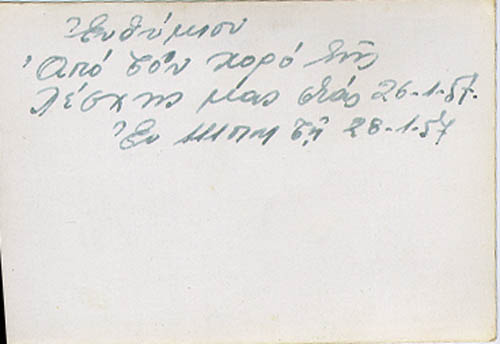 Ἐνθύμιον
Ἀπό τόν χορό τῆς
λέσχης μας στάς 26-1-57.
Ἐν τῇ 28-1-57